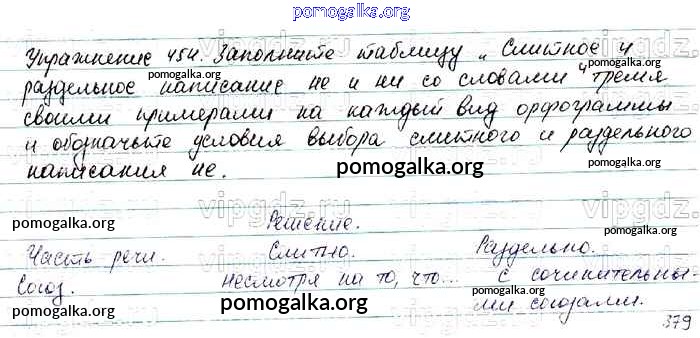 pomogalka.org
Упражнение 454. Заполните таблицу „Слитное и
pomogalka.org
раздельное написание не и ни со словами" тремя
pomogalka.org
своими примерами на каждый вид орфограммы
и обозначьте условия выбора слитного и раздельного
написания не.
pomogalka.org
vipgdz.ru
pomogalka.org Решение. pomogalka.org
Часть речи. Слитно. Раздельно.
pomogalka.org
Союз. несмотря на то, что... с сочинительны-
pomogalka.org ми союзами. pomogalka.org
379